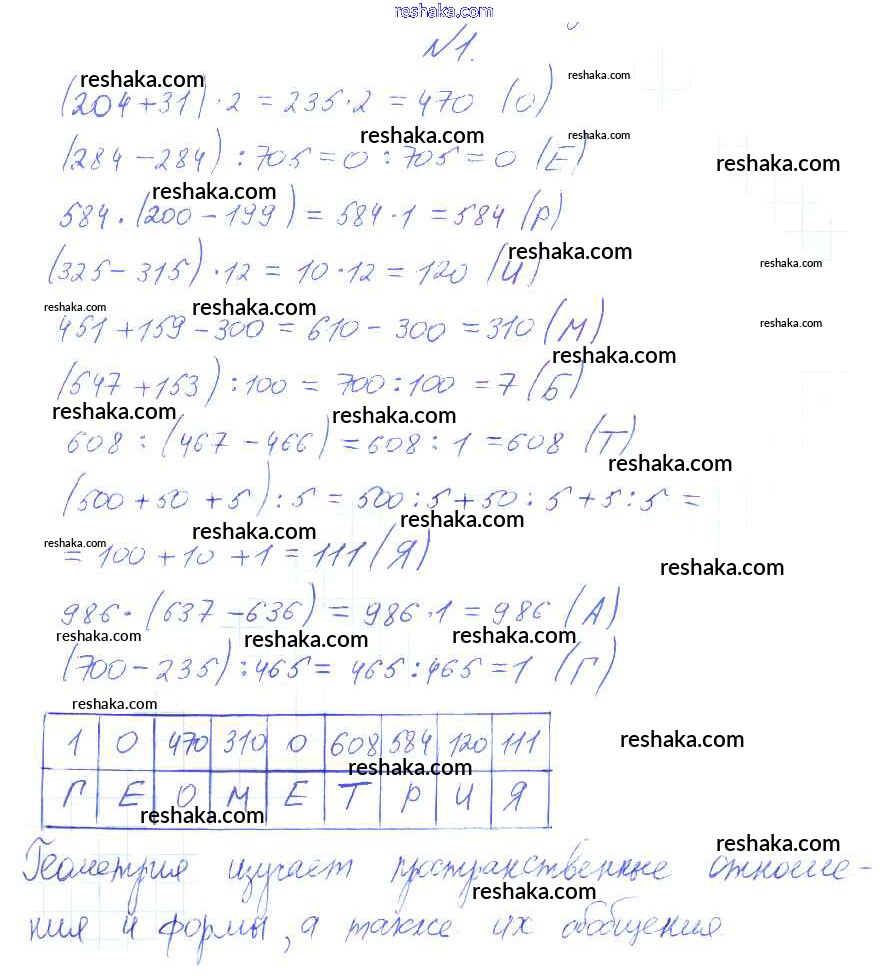 reshaka.com
№1.
reshaka.com
reshaka.com
(204+31)·2 = 235·2 = 470 (О)
reshaka.com
reshaka.com
(284-284):705=0:705=0 (Е)
reshaka.com
reshaka.com
584·(200-199)=584·1=584 (Р)
reshaka.com
(325-315)·12=10·12=120 (И)
reshaka.com
reshaka.com
reshaka.com
451+159-300=610-300=310 (М)
reshaka.com
reshaka.com
(547+153):100=700:100=7 (Б)
reshaka.com
reshaka.com
608:(467-466)=608:1=608 (Т)
reshaka.com
(500+50+5):5=500:5+50:5+5:5=
reshaka.com
reshaka.com
reshaka.com
=100+10+1=111 (Я)
reshaka.com
986·(637-636)=986·1=986 (А)
reshaka.com
reshaka.com
reshaka.com
(700-235):465=465:465=1 (Г)
reshaka.com
1 0 470 310 0 608 584 120 111
reshaka.com
reshaka.com
Г Е О М Е Т Р И Я
reshaka.com
reshaka.com
Геометрия изучает пространственные отноше-
reshaka.com
ния и формы, а также их обобщения